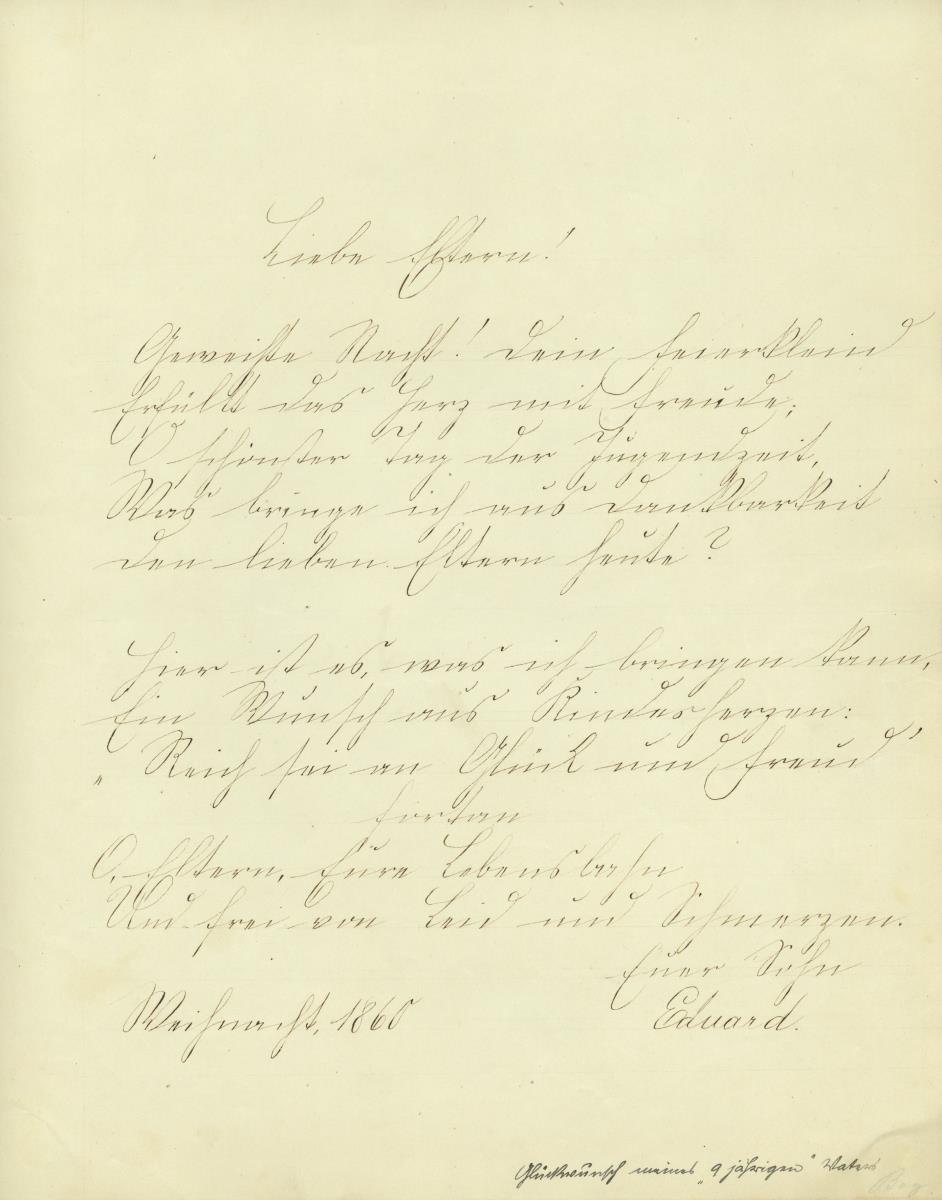 Liebe Eltern!
Geweihte Nacht! Dein Feierkleid
Erfüllt das Herz mit Freude;
O schönster Tag der Jugendzeit,
Was bringe ich aus Dankbarkeit
Den lieben Eltern heute?
Hier ist es, was ich bringen kann,
Ein Wunsch aus Kindesherzen:
„Reich sei an Glück und Freud'
fortan
O, Eltern, Eure Lebensbahn
Und frei von Leid und Schmerzen.
Euer Sohn
Weihnacht, 1860 Eduard.
Glückwunsch meines „9 jährigen" Vaters